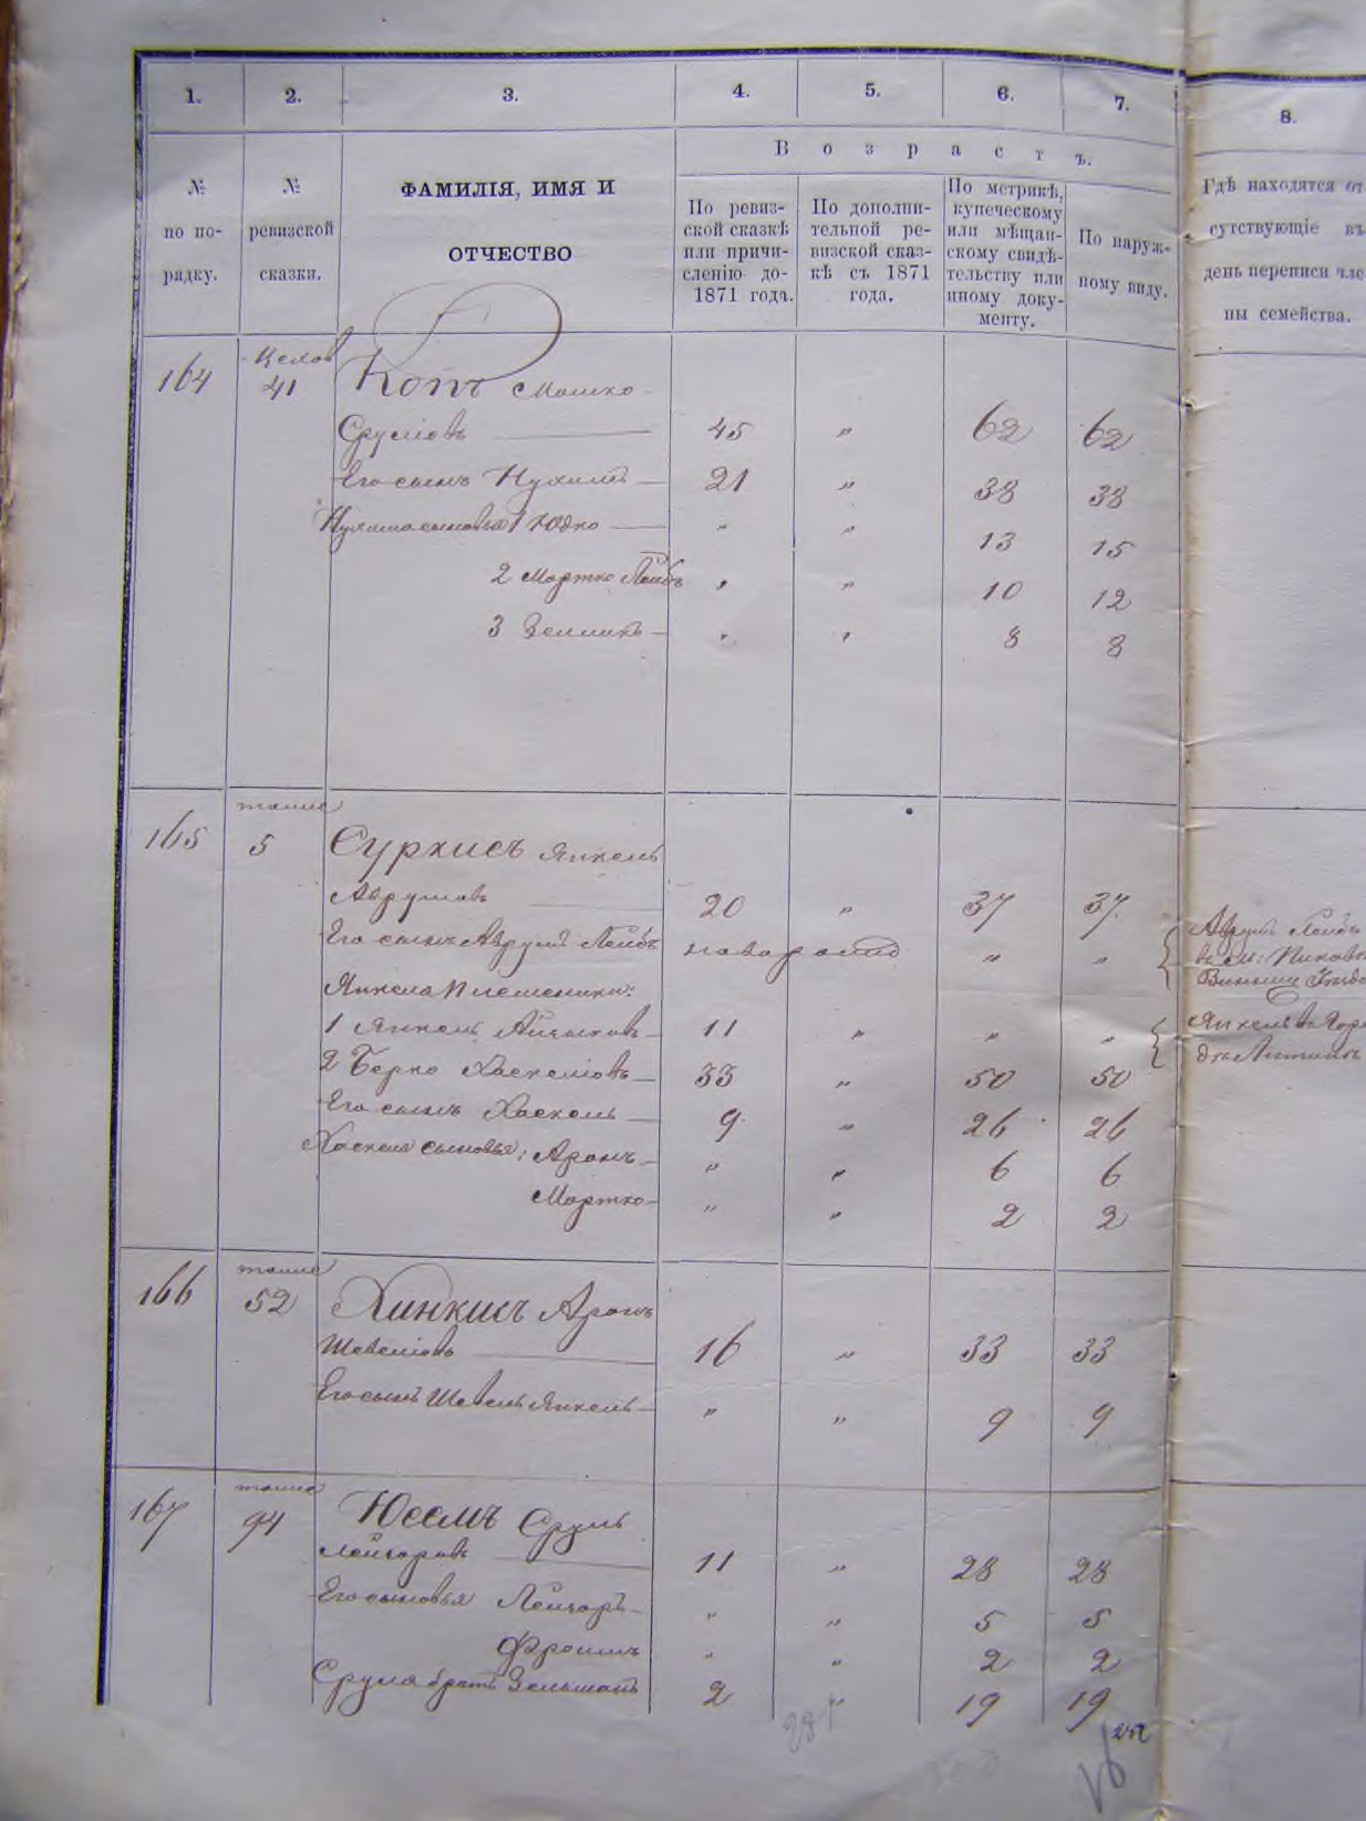 1. 2. 3. 4. 5. 6. 7. 8.
Возрастъ.
№ по по-рядку.
№ ревизской сказки.
ФАМИЛІЯ, ИМЯ И
ОТЧЕСТВО
По ревиз-
ской сказкѣ
или причи-
сленію до-
1871 года.
По дополни-
тельной ре-
визской сказ-
кѣ съ 1871
года.
По метрикѣ,
купеческому
или мѣщан-
скому свидѣ-
тельству или
иному доку-
менту.
По наруж-
ному виду.
Гдѣ находятся от
сутствующіе въ
день переписи чле
ны семейства.
164 41 Копъ Мошко
Сруліовъ 45 " 62 62
Его сынъ Нухимъ 21 " 38 38
Нухима сыновья 1 Юдко " " 13 15
2 Мортко Лейбъ " " 10 12
3 Зелликъ " " 8 8
165 5 Суркисъ Янкель
Аврумовъ 20 " 37 37
Его сынъ Аврумъ Лейбъ " "
Аврумъ Лейбъ
Янкеля племенники:
1 Янкель 11 " " "
Янкель въ
2 Берко Хаскеліовъ 33 " 50 50
Его сынъ Хаскель 9 " 26 26
Хаскеля сыновья: Аронъ " " 6 6
Мортко " " 2 2
166 52 Хинкисъ Аронъ
Шевеліовъ 16 " 33 33
Его сынъ Шевель Янкель " " 9 9
167 94 Юсемъ Сруль
Лейзоровъ 11 " 28 28
Его сыновья Лейзоръ " " 5 5
Фроимъ " " 2 2
Сруля братъ Зельманъ 2 " 19 19